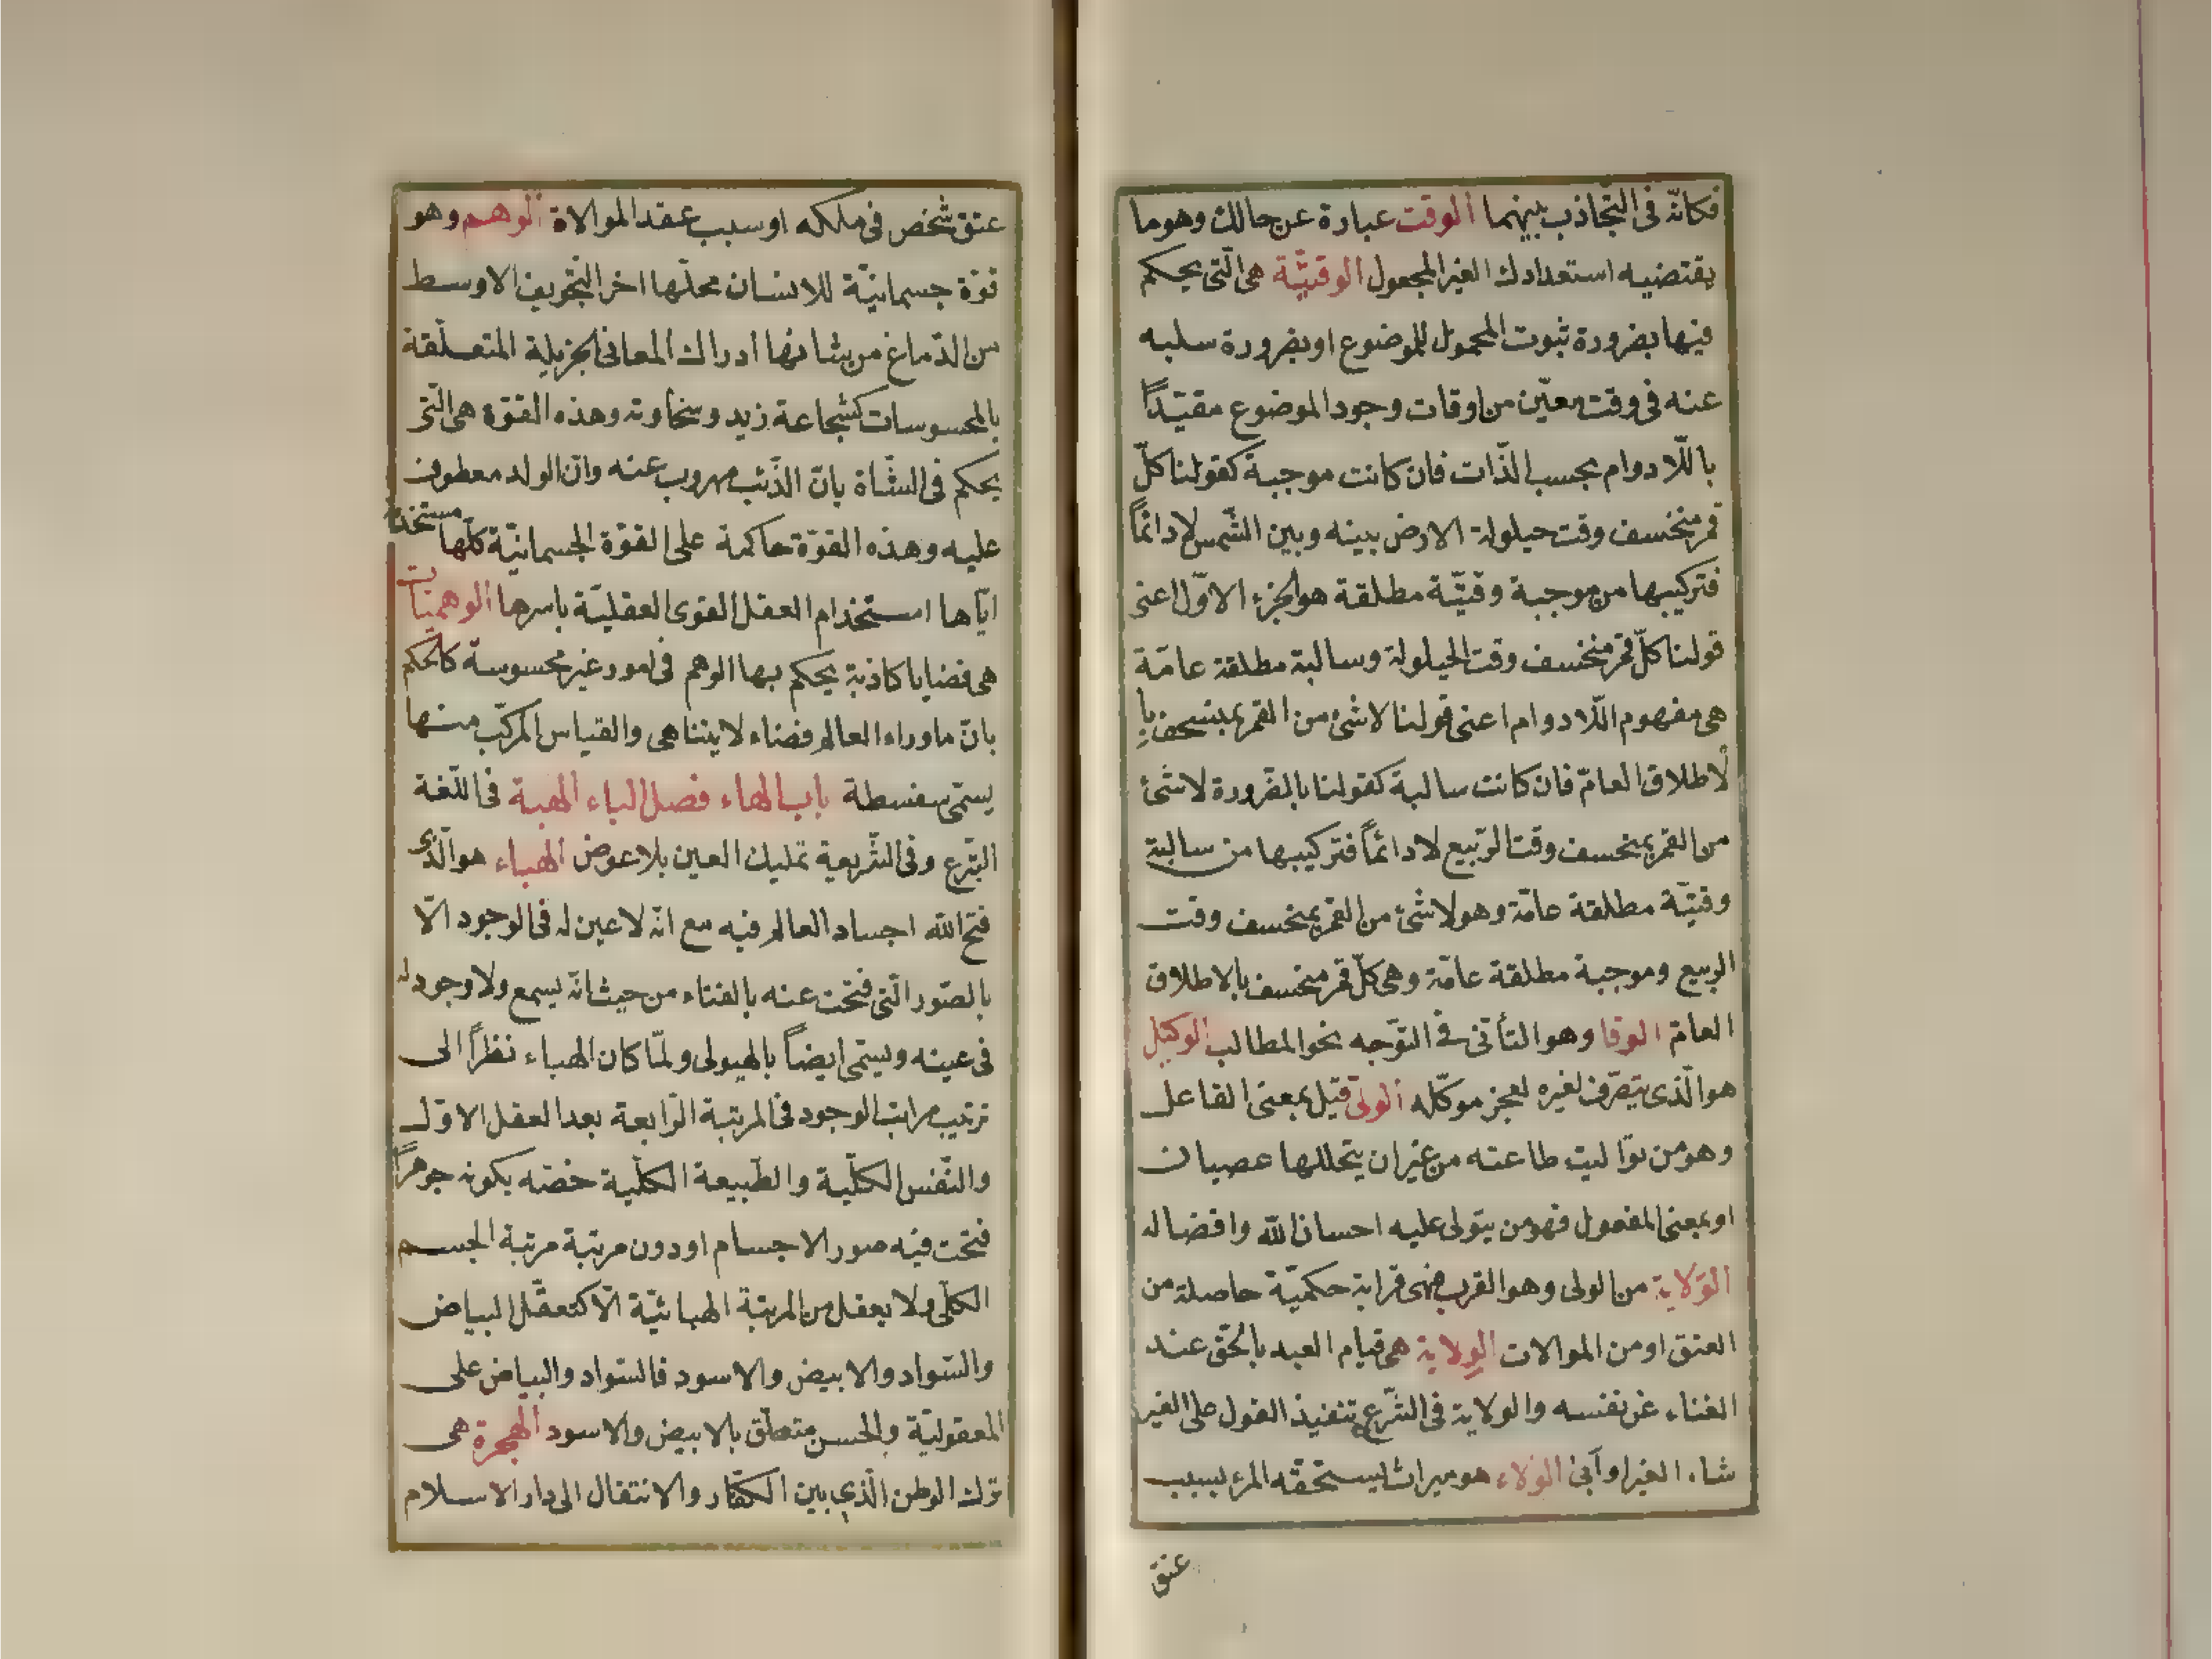 فكانّه فى التّجاذب بينهما الوقت عبارة عن حالك وهو ما
يقتضيه استعدادك الغير المجعول الوقتيّة هى الّتى يحكم
فيها بضرورة ثبوت المحمول للموضوع او بضرورة سلبه
عنه فى وقت معيّن من اوقات وجود الموضوع مقيّداً
باللّا دوام بحسب الذّات فان كانت موجبة كقولنا كلّ
قمر منخسف وقت حيلولة الارض بينه وبين الشّمس لا دائماً
فتركيبها من موجبة وقتيّة مطلقة هو الجزء الاوّل اعنى
قولنا كلّ قمر منخسف وقت الحيلولة وسالبة مطلقة عامّة
هى مفهوم اللّا دوام اعنى قولنا لا شئ من القمر بمنسخف با
لاطلاق العامّ فان كانت سالبة كقولنا بالضّرورة لا شئ
من القمر بمنخسف وقت الرّبيع لا دائماً فتركيبها من سالبة
وقتيّة مطلقة عامّة وهو لا شئ من القمر بمنخسف وقت
الربيع وموجبة مطلقة عامّة وهى كلّ قمر منخسف بالاطلاق
العامّ الوقا وهو التأنّى فى التوّجه نحو المطالب الوكيل
هو الّذى يتصّرف لغيره لعجز موكّله الولىّ فيل بمعنى الفاعل
وهو من توّاليت طاعته من غير ان يتخللها عصيان
او بمعنى المفعول فهو من يتولى عليه احسان الله وافضاله
الوَلاية من الولى وهو القرب فهى قرابة حكميّة حاصلة من
العتق او من الموالات الوِلاية هى قيام العبد بالحّق عند
الفناء عن نفسه والولاية فى الشّرع تنفيذ القول على الغير
شاء الغير او أبى الولاء هو ميراث يستحّقه المرء بسبب
عتق
عتق شخص فى ملكه او سبب عقد الموالاة الوهم وهو
قوّة جسمانيّة للانسان محلّها اخر التّجويف الاوسط
من الدّماغ من شانها ادراك المعانى الجزيلة المتعلّقة
بالمحسوسات كشجاعة زيد وسخاوته وهذه القوّة هى الّتى
يحكم فى الشّاة بانّ الذّئب مهروب عنه وانّ الولد معطوف
عليه وهذه القوّة حاكمة على القوّة الجسمانيّة كلّها مستخدمة
ايّاها استخدام العقل القوى العقليّة باسرها الوهميّات
هى قضايا كاذبة يحكم بها الوهم فى امور غير محسوسة كالحكم
بانّ ماوراء العالم فضاء لا يتناهى والقياس المركّب منها
يسمّى سفسطة باب الهاء فصل الباء الهبة فى اللّغة
التبّرع وفى الشّريعة تمليك العين بلا عوض الهباء هو الّذى
فتح الله اجساد العالم فيه مع انّه لا عين له فى الوجود الّا
بالصّور الّتى فتحت عنه بالفناء من حيث انّه يسمع ولا وجود له
فى عينه ويسمّى ايضاً بالهيولى ولمّا كان الهباء نظراً الى
ترتيب مراتب الوجود فى المرتبة الرّابعة بعد العقل الاوّل
والنّفس الكلّية والطّبيعة الكلّية خصّه بكونه جوهراً
فتحت فيه صور الاجسام او دون مرتبة مرتبة الجسم
الكلّى ولا يعقل من المرتبة الهبائيّة الّا كتعقّل البياض
والسّواد والابيض والاسود فالسّواد والبياض على
المعقوليّة والحسن متعلّق بالابيض والاسود الهجرة هى
ترك الوطن الّذى بين الكفّار والانتقال الى دار الاسلام